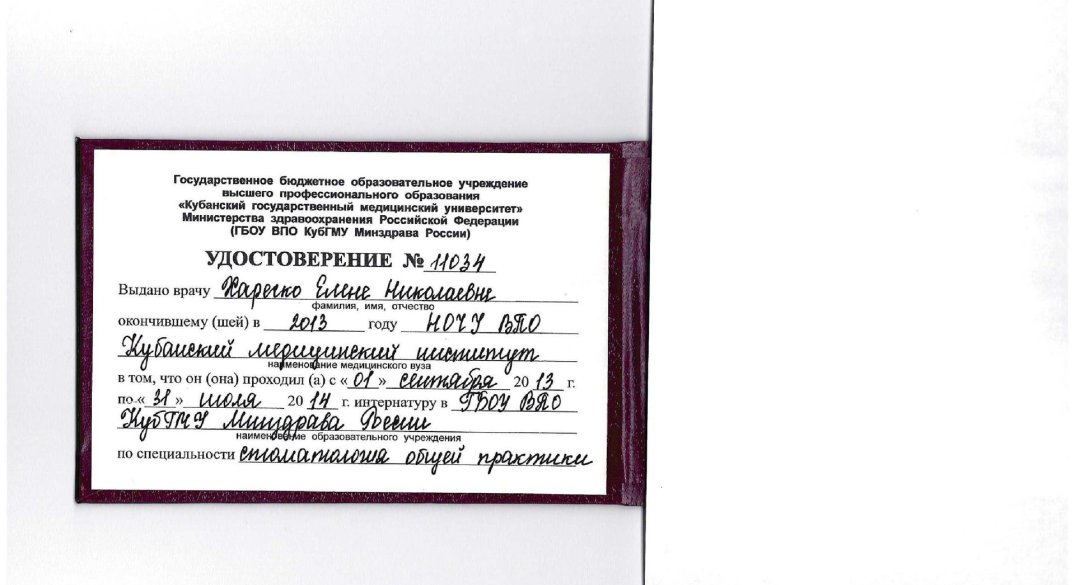 Государственное бюджетное образовательное учреждение
высшего профессионального образования
«Кубанский государственный медицинский университет»
Министерства здравоохранения Российской Федерации
(ГБОУ ВПО КубГМУ Минздрава России)
УДОСТОВЕРЕНИЕ № 11034
Выдано врачу Харечко Елене Николаевне
фамилия, имя, отчество
окончившему (шей) в 2013 году НОЧУ ВПО
Кубанский медицинский институт
наименование медицинского вуза
в том, что он (она) проходил (а) с «01» сентября 2013 г.
по «31» июля 2014 г. интернатуру в ГБОУ ВПО
КубГМУ Минздрава России
наименование образовательного учреждения
по специальности стоматология общей практики